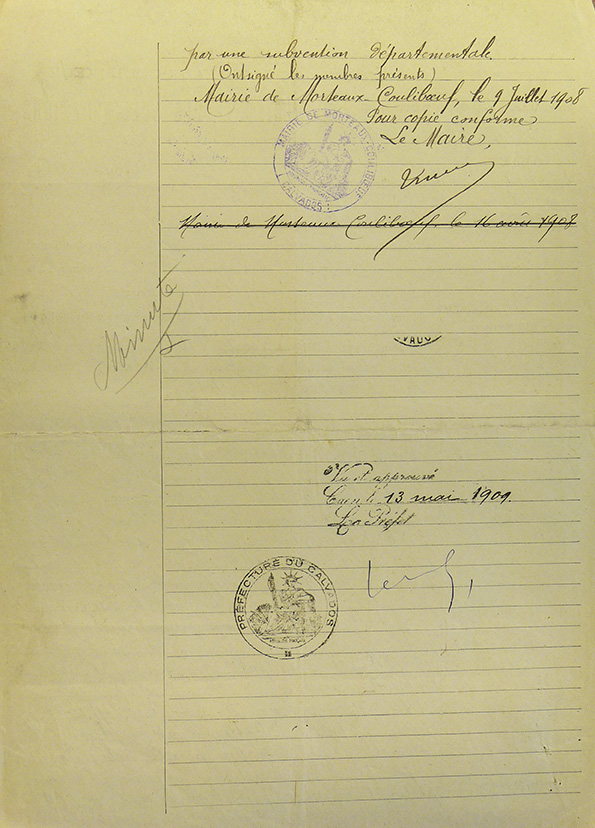 par une subvention départementale.
(Ont signé les membres présents)
Mairie de Morteaux-Coulibœuf, le 9 Juillet 1908
Pour copie conforme
Le Maire,
MAIRIE DE MORTEAUX-COULIBŒUF
CALVADOS
Mairie de Morteaux-Coulibœuf, le 16 1908
Minute
VADO
Vu et approuvé
Caen le 13 mai 1909
Le Préfet
PRÉFECTURE DU CALVADOS